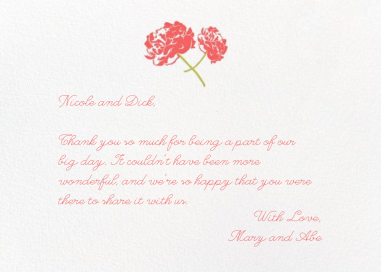 Nicole and Dick,
Thank you so much for being a part of our
big day. It couldn't have been more
wonderful, and we're so happy that you were
there to share it with us.
With Love,
Mary and Abe